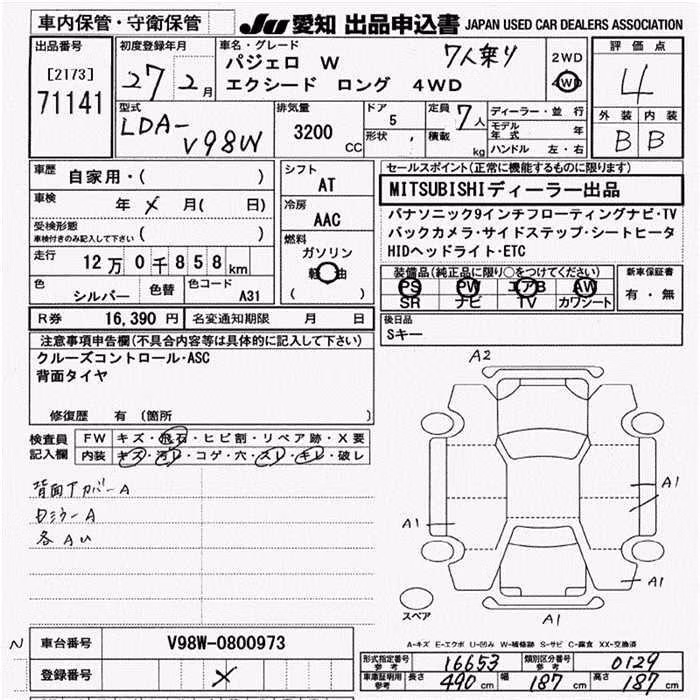 車内保管・守衛保管
JU 愛知 出品申込書 JAPAN USED CAR DEALERS ASSOCIATION
出品番号
[2173]
71141
初度登録年月
27 2月
車名・グレード
7人乗り
パジェロ W
エクシード ロング 4WD
2WD
4WD
評価点
4
外装 内装
B B
型式
LDA-
V98W
排気量
3200 CC
ドア
5
形状
定員 7人
積載 kg
ディーラー・並行
モデル年式 年
ハンドル 左・右
車歴
自家用・( )
車検
年 × 月( 日)
受検形態
車検付きのみ記入して下さい ( )
走行
12万0千858km
色
シルバー
色替
色コード
A31
シフト
AT
冷房
AAC
燃料
ガソリン
軽油
( )
セールスポイント(正常に機能するものに限ります)
MITSUBISHIディーラー出品
パナソニック9インチフローティングナビ・TV
バックカメラ・サイドステップ・シートヒータ
HIDヘッドライト・ETC
装備品(純正品に限り○をつけてください)
PS PW エアB AW
SR ナビ TV カワシート
新車保証書
有・無
R券 16,390円
名変通知期限 月 日
後日品
Sキー
注意事項申告欄(不具合内容等は具体的に記入して下さい)
クルーズコントロール・ASC
背面タイヤ
修復歴 有 (箇所 )
検査員
記入欄
FW キズ・飛石・ヒビ割・リペア跡・X要
内装 キズ・汚レ・コゲ・穴・スレ・キレ・破レ
背面Tカバー A
ロミラー A
各 A U
A2
A1
A1
A1
A1
スペア
A-キズ E-エクボ U-凹み W-補修跡 S-サビ C-腐食 XX-交換済
N
車台番号 V98W-0800973
登録番号 ×
形式指定番号 参考 16653
類別区分番号 参考 0129
車庫証明用 参考 長さ 490cm 幅 187cm 高さ 187cm